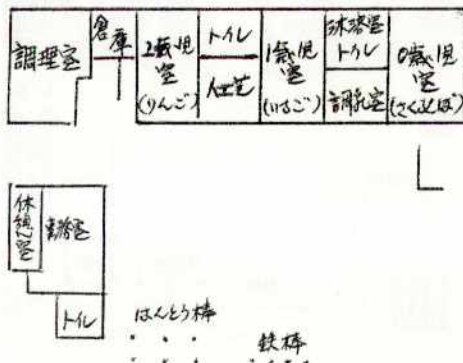 調理室
倉庫
2歳児
室
(りんご)
トイレ
1歳児
室
(いちご)
沐浴室
トイレ
調乳室
0歳児
室
(さくらんぼ)
休憩室
事務室
トイレ
はんとう棒
鉄棒